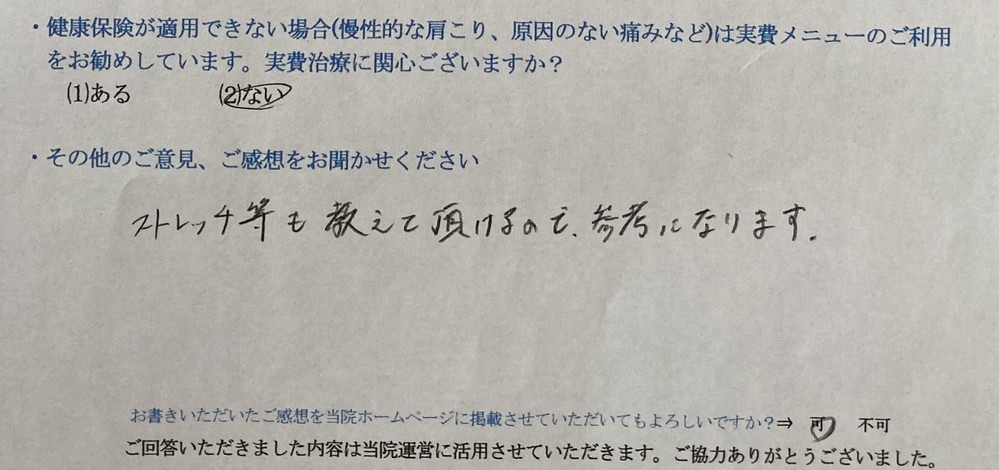 ・健康保険が適用できない場合(慢性的な肩こり、原因のない痛みなど)は実費メニューのご利用
をお勧めしています。実費治療に関心ございますか？
(1)ある (2)ない
・その他のご意見、ご感想をお聞かせください
ストレッチ等も教えて頂けるので、参考になります。
お書きいただいたご感想を当院ホームページに掲載させていただいてもよろしいですか？⇒ 可 不可
ご回答いただきました内容は当院運営に活用させていただきます。ご協力ありがとうございました。